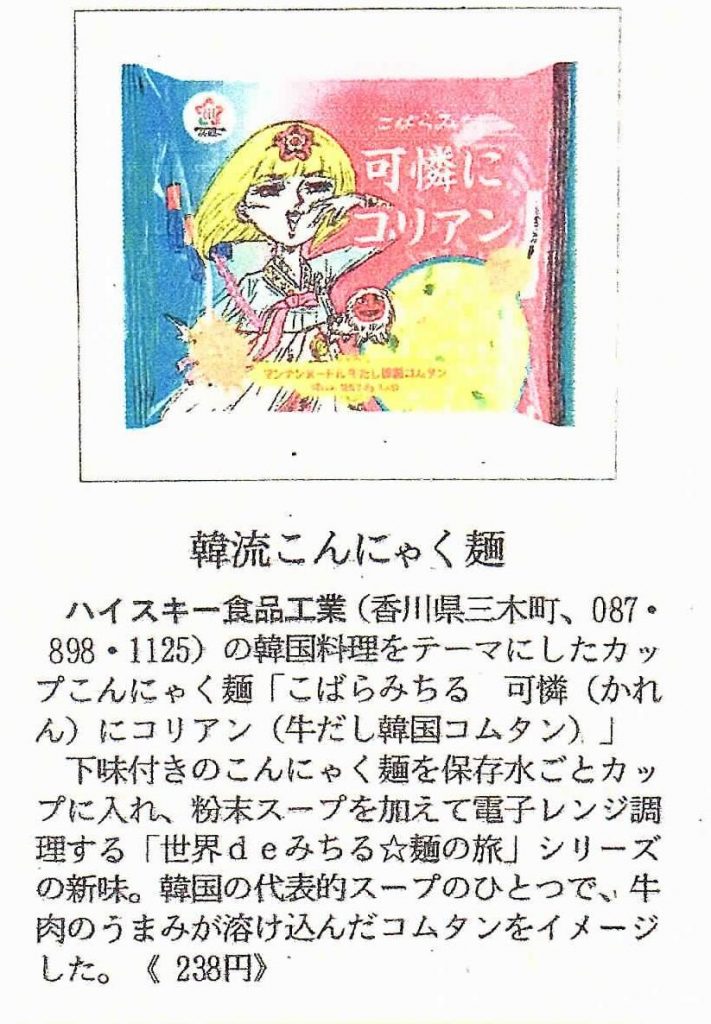 こばらみちる
可憐に
コリアン
マンナンヌードル牛だし韓国コムタン
韓流こんにゃく麺
ハイスキー食品工業（香川県三木町、087・
898・1125）の韓国料理をテーマにしたカッ
プこんにゃく麺「こばらみちる　可憐（かれ
ん）にコリアン（牛だし韓国コムタン）」
下味付きのこんにゃく麺を保存水ごとカッ
プに入れ、粉末スープを加えて電子レンジ調
理する「世界ｄｅみちる☆麺の旅」シリーズ
の新味。韓国の代表的スープのひとつで、牛
肉のうまみが溶け込んだコムタンをイメージ
した。《 238円》